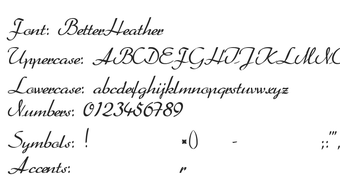 Font: BetterHeather
Uppercase: ABCDEFGHIJKLMNO
Lowercase: abcdefghijklmnopqrstuvwxyz
Numbers: 0123456789
Symbols: ! *() - ;:'",
Accents: r